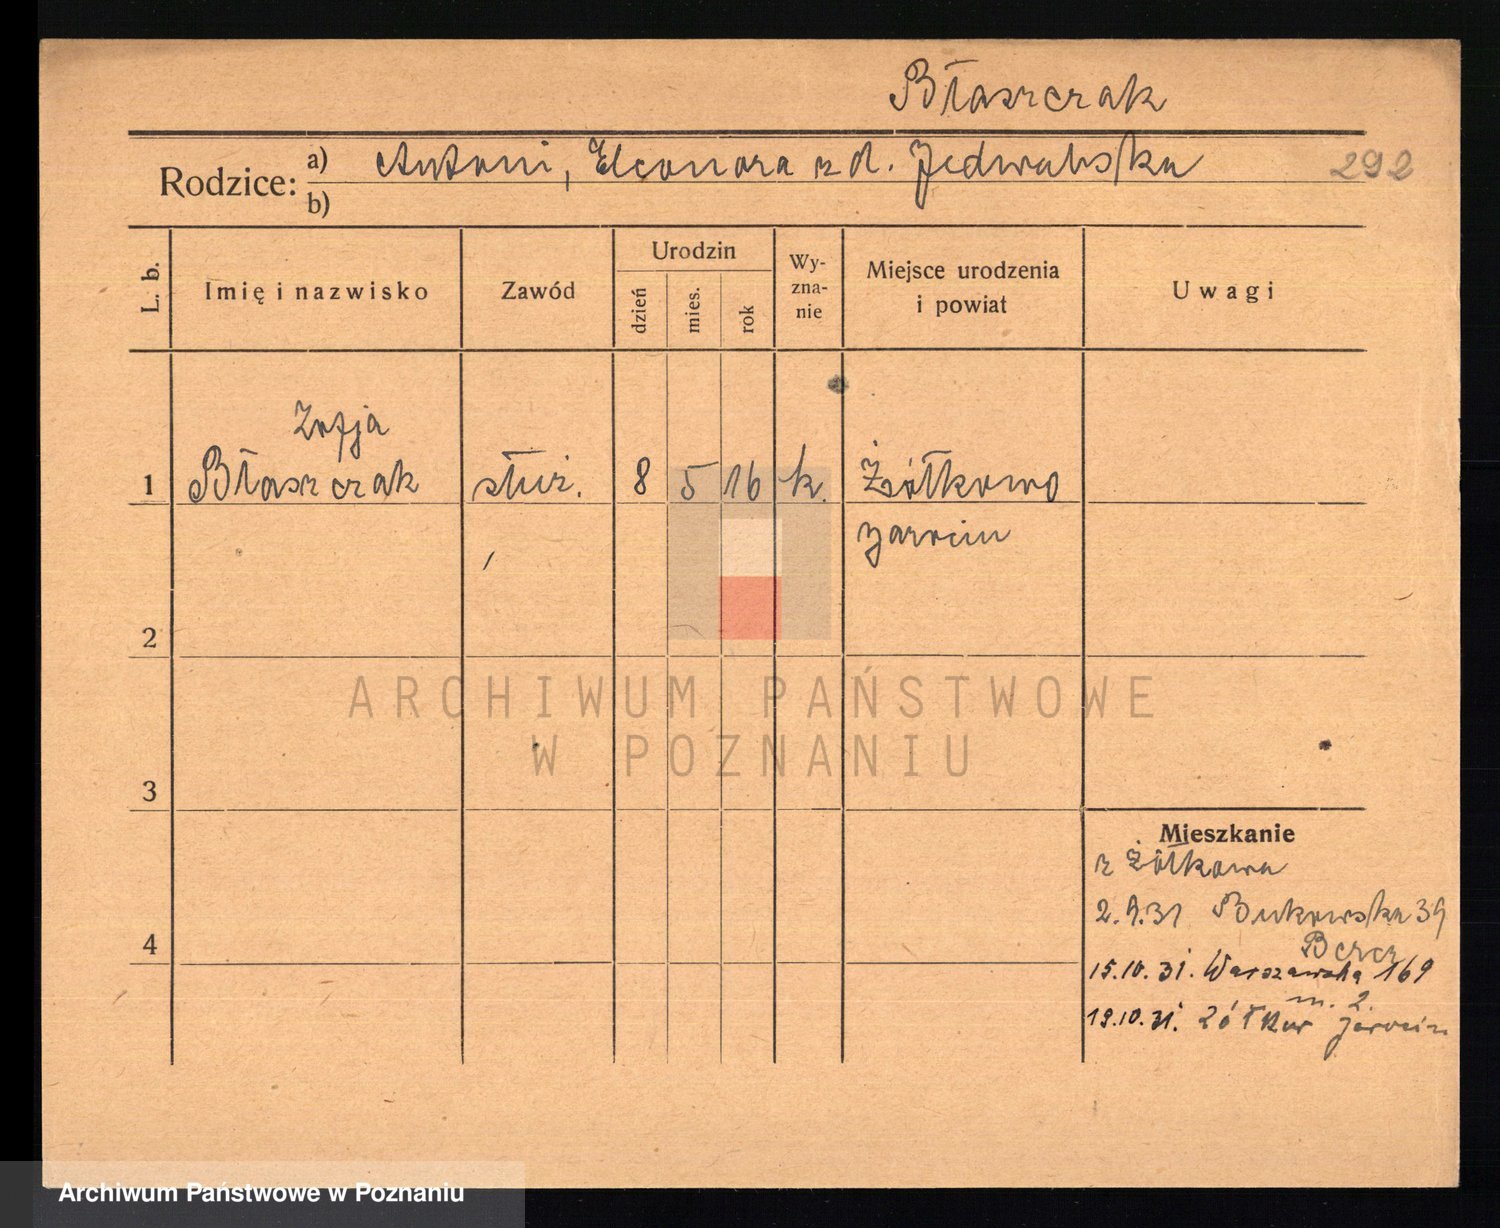 Błaszczak
Rodzice: a) Antoni, Eleonora z d. Jedwabska
292
b)
L. b.
Imię i nazwisko
Zawód
Urodzin
dzień
mies.
rok
Wy-
zna-
nie
Miejsce urodzenia
i powiat
Uwagi
Zofja
1 Błaszczak służ. 8 5 16 k. Żółkowo
Jarocin
2
3
4
Mieszkanie
z Żółkowa
2.9.31 Bukowska 39
15.10.31. Warszawska 169
m. 2.
19.10.31. Jarocin
ARCHIWUM PAŃSTWOWE
W POZNANIU
Archiwum Państwowe w Poznaniu